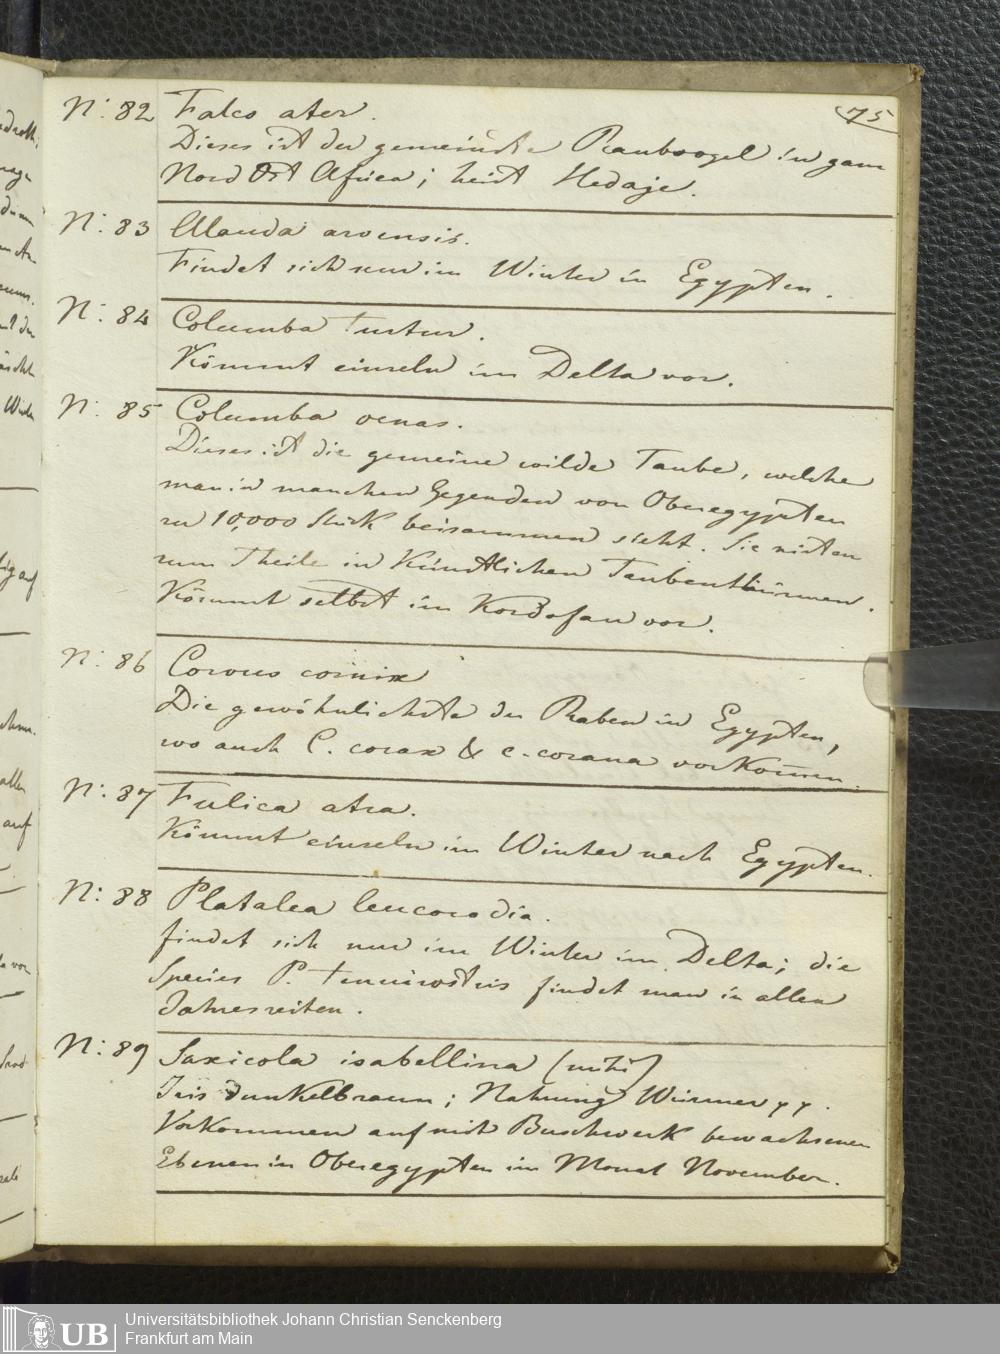 75
N: 82 Falco ater.
Dieses ist der gemeinste Raubvogel in ganz
Nord Ost Africa; heist Hedaje.
N: 83 Alauda arvensis.
Findet sich nur im Winter in Egypten.
N: 84 Columba turtur.
Kömmt einzeln im Delta vor.
N: 85 Columba oenas.
Dieses ist die gemeine wilde Taube, welche
man in manchen Gegenden von Oberegypten
zu 10,000 Stück beisammen sieht. Sie nisten
zum Theile in Künstlichen Taubenthürmen.
Kömmt selbst im Kordofan vor.
N: 86 Corvus cornix
Die gewöhnlichste der Raben in Egypten,
wo auch C. corax & c. corana vorkommen
N: 87 Fulica atra.
Kömmt einzeln im Winter nach Egypten.
N: 88 Platalea leucorodia.
findet sich nur im Winter im Delta; die
Species P. tenuirostris findet man in allen
Jahreszeiten.
N: 89 Saxicola isabellina (mihi)
Iris dunkelbraun; Nahrung Würmer pp.
Vorkommen auf mit Buschwerk bewachsenen
Ebenen in Oberegypten im Monat November.
UB
Universitätsbibliothek Johann Christian Senckenberg
Frankfurt am Main